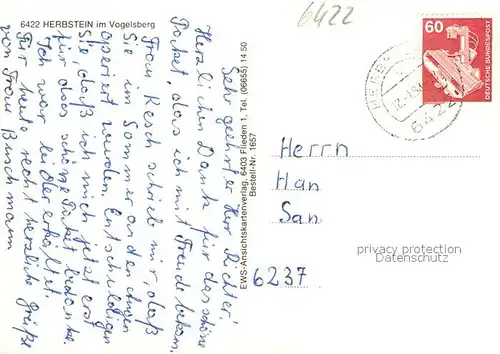 6422 HERBSTEIN im Vogelsberg
6422
60
DEUTSCHE BUNDESPOST
6422
Sehr geehrter Herr Richter!
Herzlichen Dank für das schöne
Paket, das ich mit Freude bekam.
Frau Resch schrieb mir, daß
Sie im Sommer an den Augen
operiert wurden. Entschuldigen
Sie, daß ich mich jetzt erst
für das schöne Paket bedanke.
Ich war leider erkältet.
Für heute recht herzliche Grüße
von Frau Buschmann
EWS-Ansichtskartenverlag, 6403 Flieden 1, Tel. (06655) 14 50
Bestell-Nr. 1657
Herrn
Han
San
6237
privacy protection
Datenschutz